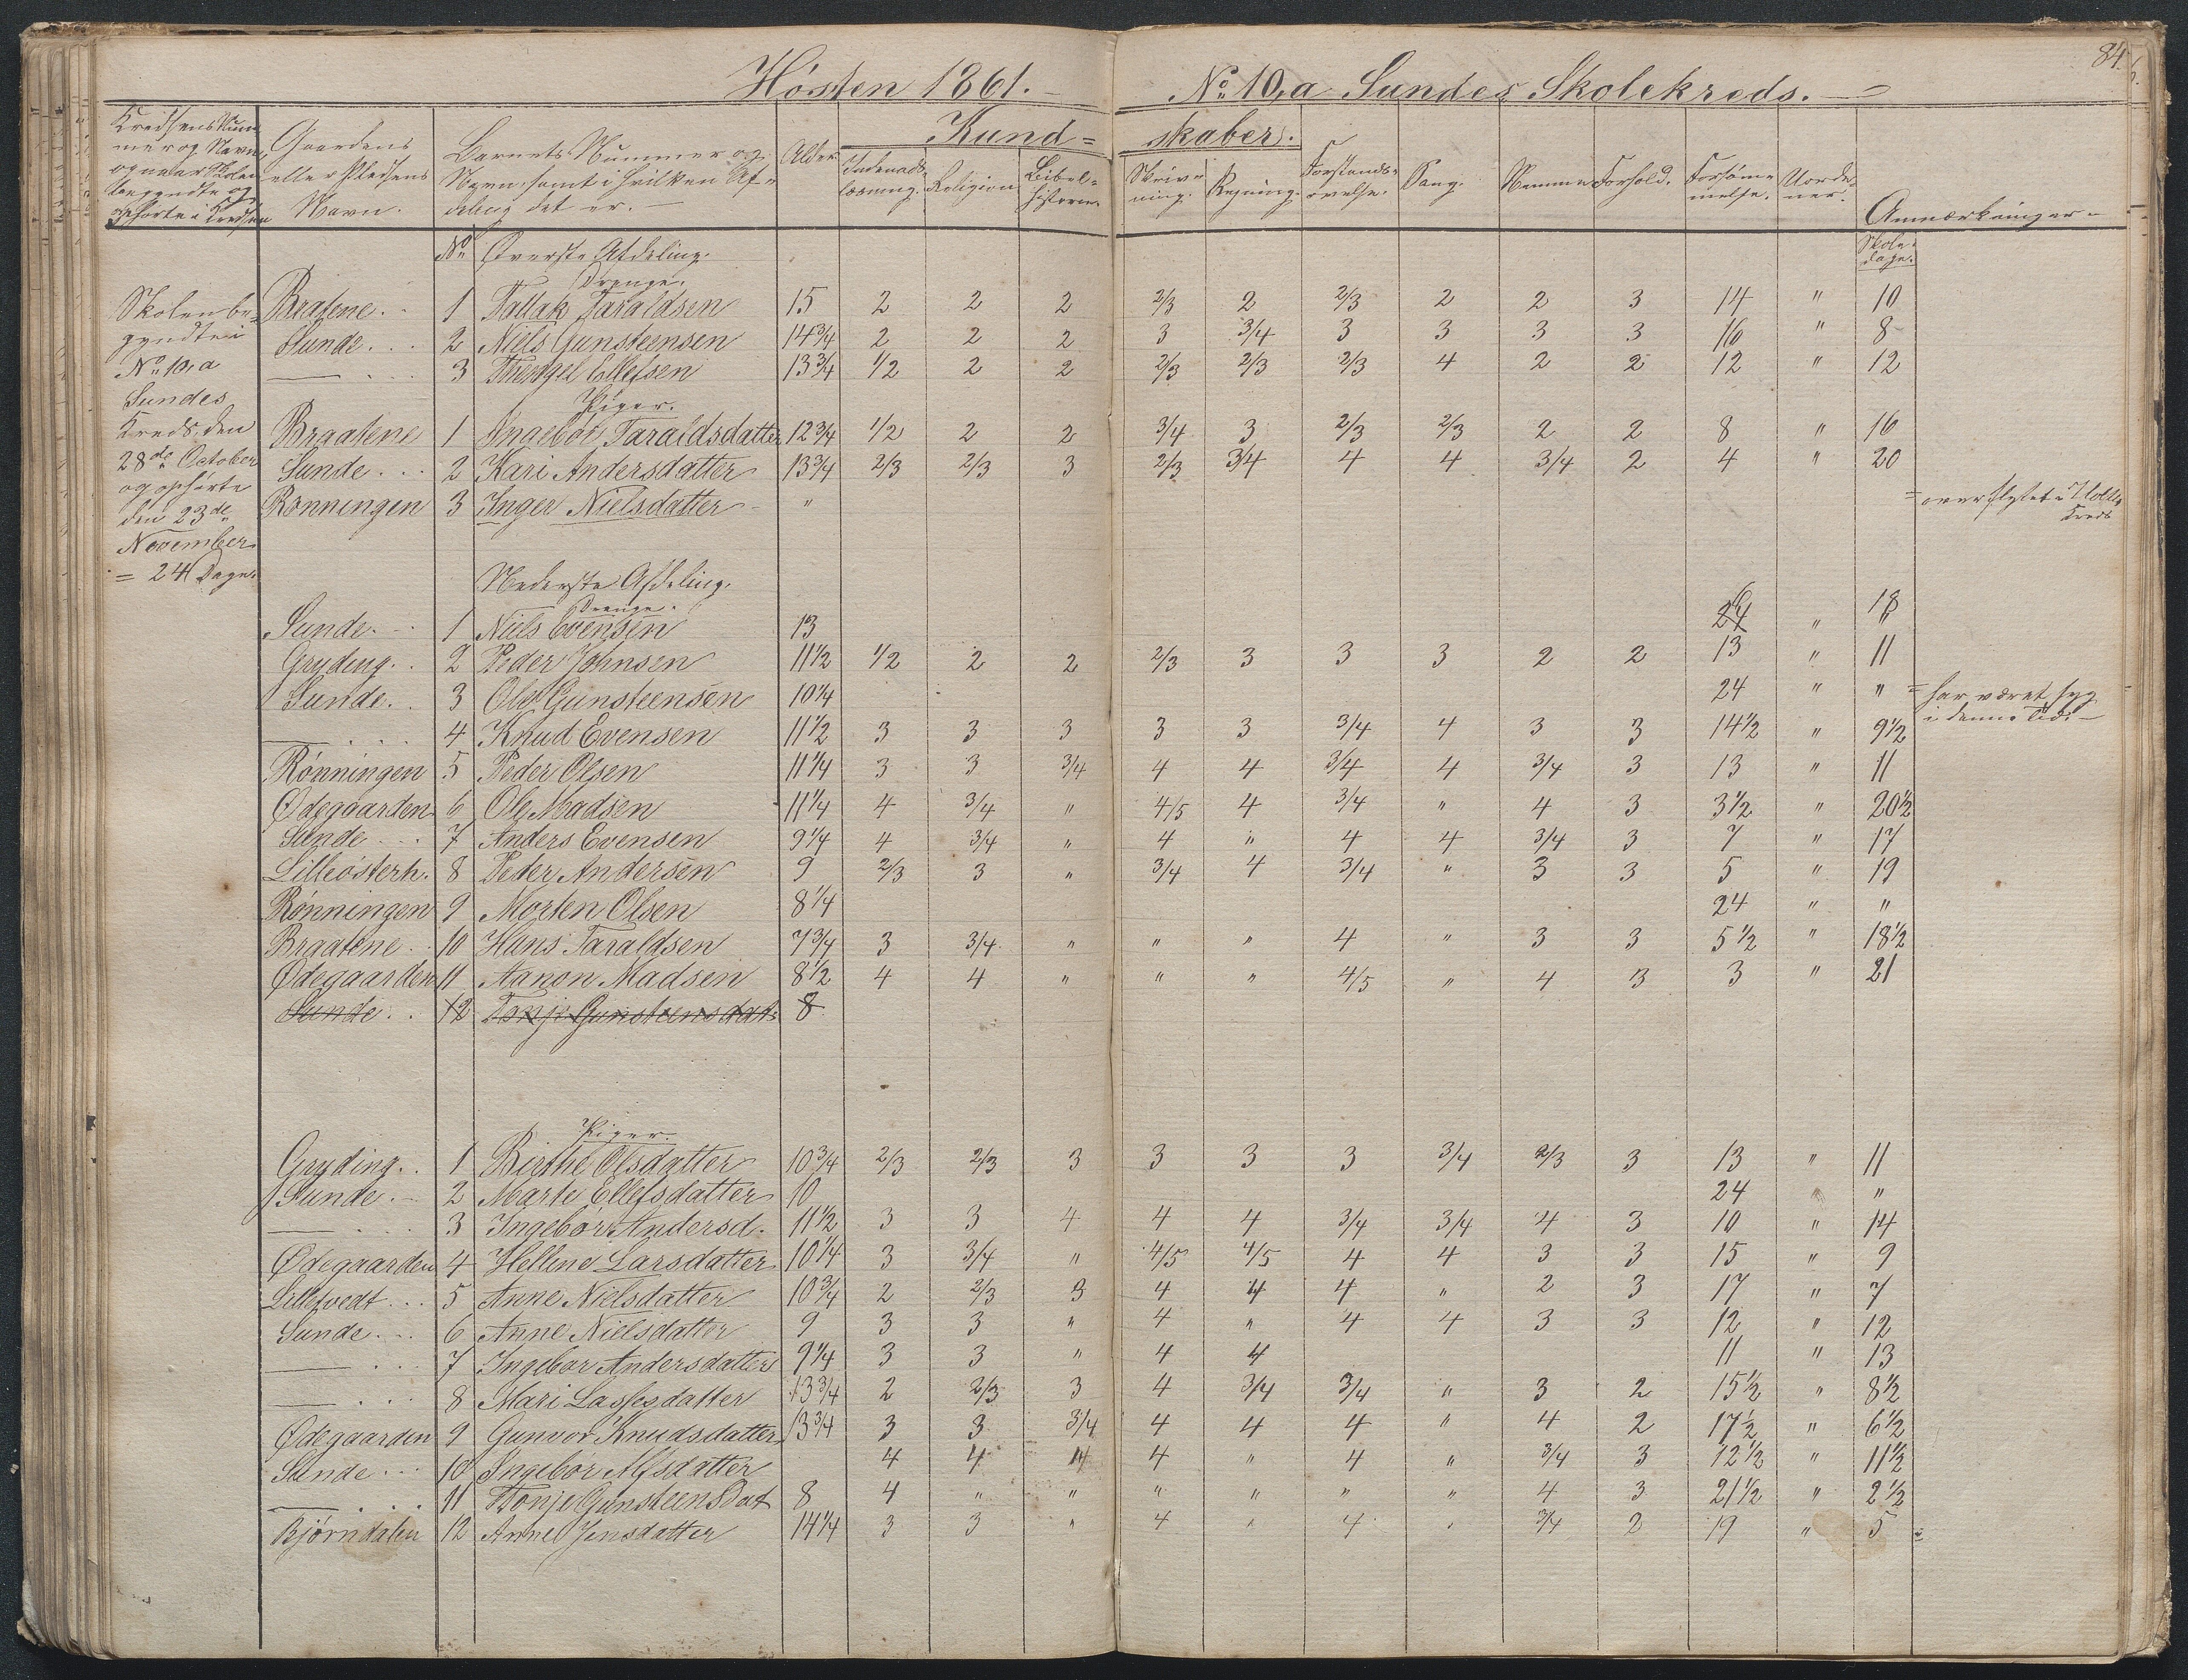 84.
Hösten 1861. — No. 10,a Sundes Skolekreds. —
Kredsens Num-
mer og Navn,
og naar Skolen
begyndte og
ophörte i Kredsen
Gaardens
eller Pladsens
Navn.
Barnets Nummer og
Navn, samt i hvilken Af-
deling det er. —
Alder
Kund= skaber.
Indenads-
læsning.
Religion
Bibel-
historie.
Skriv-
ning.
Regning.
Forstands-
övelse.
Sang.
Nemme
Forhold.
Forsöm-
melse.
Uorde-
ner.
Anmærkninger
No. Överste Afdeling.
Skole-
dage.
Drenge.
Skolen be-
gyndte i
No. 10,a
Sundes
Kreds den
28de October
og ophörte
den 23de
November
= 24 Dage.
Bratene. 1 Tallak Taraldsen 15 2 2 2 2/3 2 2/3 2 2 3 14 " 10
Sunde. 2 Niels Gunsteensen 14 3/4 2 2 2 3 3/4 3 3 3 3 16 " 8
— 3 Ellefsen 13 3/4 1/2 2 2 2/3 2/3 2/3 4 2 2 12 " 12
Piger.
Braatene 1 Ingebor Taraldsdatter 12 3/4 1/2 2 2 3/4 3 2/3 2/3 2 2 8 " 16
Sunde 2 Kari Andersdatter 13 3/4 2/3 2/3 3 2/3 3/4 4 4 3/4 2 4 " 20
Rönningen 3 Inger Nielsdatter " = overflytet i Kreds
Nederste Afdeling.
Drenge.
Sunde. 1 Niels Evensen 13 24 6 " 18
Gryding. 2 Peder Johnsen 11 1/2 1/2 2 2 2/3 3 3 3 2 2 13 " 11
Sunde. 3 Ole Gunsteensen 10 1/4 24 " " = har været syg
i denne Tid. —
— 4 Knud Evensen 11 1/2 3 3 3 3 3 3/4 4 3 3 14 1/2 " 9 1/2
Rönningen 5 Peder Olsen 11 1/4 3 3 3/4 4 4 3/4 4 3/4 3 13 " 11
Ødegaarden 6 Ole Madsen 11 1/4 4 3/4 " 4/5 4 3/4 " 4 3 3 1/2 " 20 1/2
Sunde 7 Anders Evensen 9 1/4 4 3/4 " 4 " 4 4 3/4 3 7 " 17
Lilleösterh. 8 Peder Andersen 9 2/3 3 " 3/4 4 3/4 " 3 3 5 " 19
Rönningen 9 Morten Olsen 8 1/4 24 " "
Braatene 10 Hans Taraldsen 7 3/4 3 3/4 " " " 4 " 3 3 5 1/2 " 18 1/2
Ødegaarden 11 Aanon Madsen 8 1/2 4 4 " " " 4/5 " 4 3 3 " 21
Sunde 12 Tonje Gunsteensdat. 8
Piger.
Gryding. 1 Birthe Olsdatter 10 3/4 2/3 2/3 3 3 3 3 3/4 2/3 3 13 " 11
Sunde. 2 Marte Ellefsdatter 10 24 " "
— 3 Ingebor Andersd. 11 1/2 3 3 4 4 4 3/4 3/4 4 3 10 " 14
Ødegaarden 4 Hellene Larsdatter 10 1/4 3 3/4 " 4/5 4/5 4 4 3 3 15 " 9
Lillefvedt 5 Anne Nielsdatter 10 3/4 2 2/3 3 4 4 4 " 2 3 17 " 7
Sunde. 6 Anne Nielsdatter 9 3 3 " 4 " 4 4 3 3 12 " 12
— 7 Ingebor Andersdatter 9 1/4 3 3 " 4 4 11 " 13
— 8 Mari Lassesdatter 13 3/4 2 2/3 3 4 3/4 3/4 " 3 2 15 1/2 " 8 1/2
Ødegaarden 9 Gunvor Knudsdatter 13 3/4 3 3 3/4 4 4 4 " 4 2 17 1/2 " 6 1/2
Sunde 10 Ingebor Alfsdatter 4 4 4 4 " 4 " 3/4 3 12 1/2 " 11 1/2
— 11 Tonje Gunsteensdat 8 4 " " " " " " 4 3 21 1/2 " 2 1/2
Bjørndalen 12 Anne Jensdatter 14 1/4 3 3 " 4 " 4 " 3/4 2 19 " 5